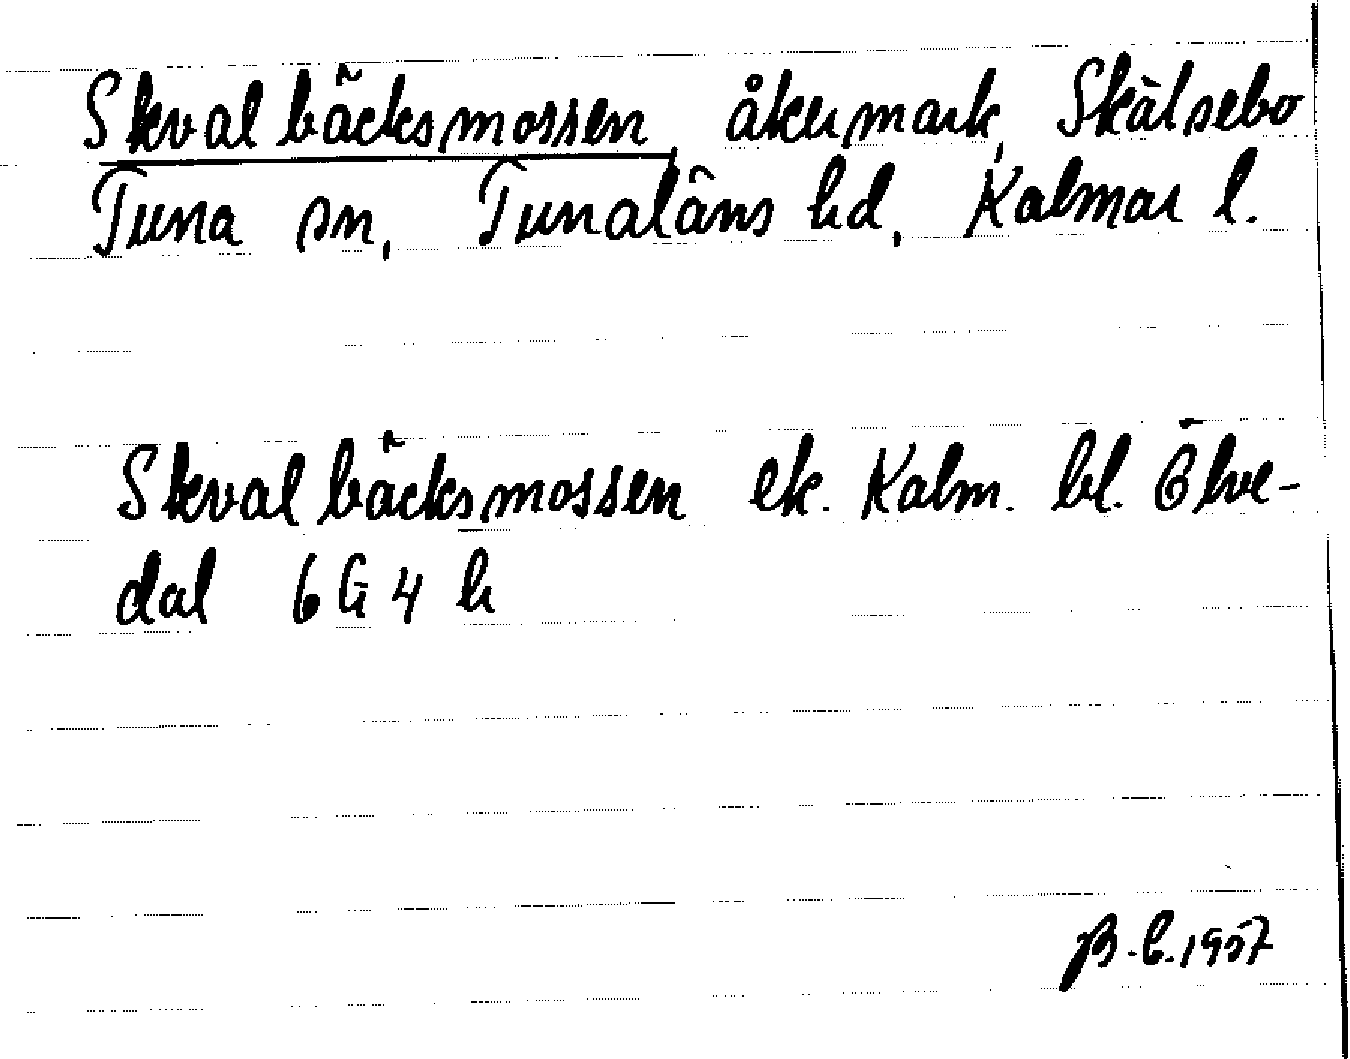 Skvalbäcksmossen, åkermark, Skälsebo
Tuna sn, Tunaläns hd, Kalmar l.
Skvalbäcksmossen ek. Kalm. bl. Ölve-
dal 6G4h
B.L.1957